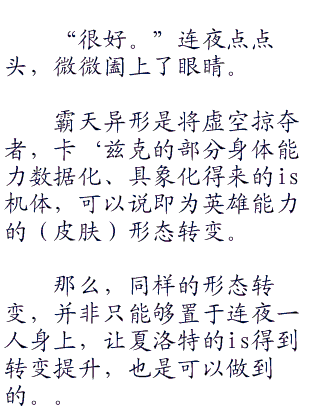 “很好。”连夜点点
头，微微阖上了眼睛。
霸天异形是将虚空掠夺
者，卡‘兹克的部分身体能
力数据化、具象化得来的is
机体，可以说即为英雄能力
的（皮肤）形态转变。
那么，同样的形态转
变，并非只能够置于连夜一
人身上，让夏洛特的is得到
转变提升，也是可以做到
的。。